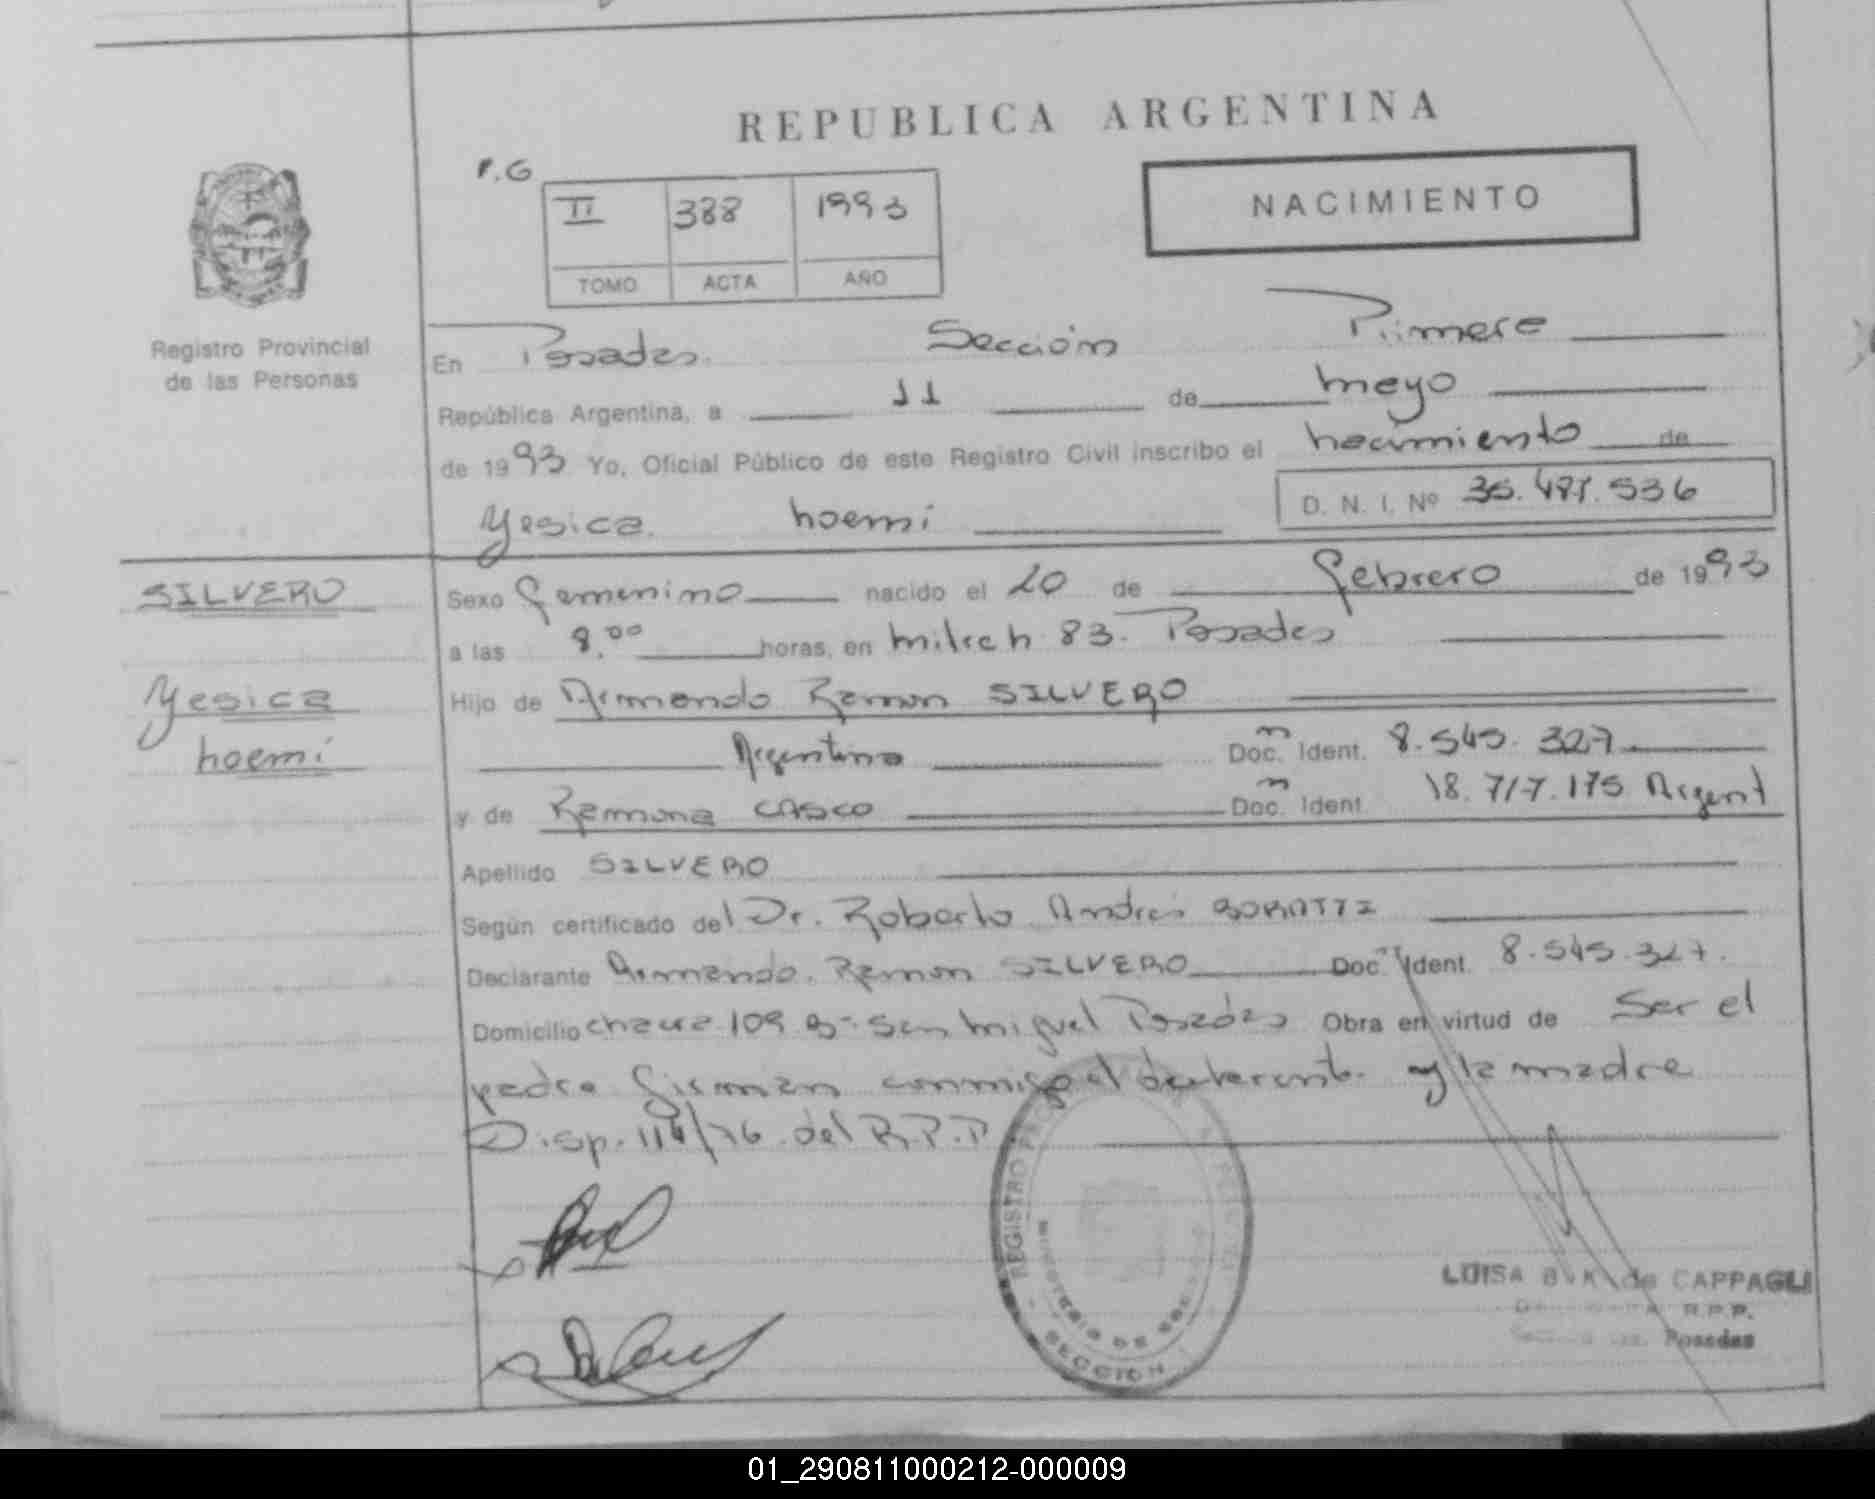 REPUBLICA ARGENTINA
P.G
II 388 1993
TOMO ACTA AÑO
NACIMIENTO
Registro Provincial
de las Personas
En Posadas. Sección Primera
República Argentina, a 11 de mayo
de 1993 Yo, Oficial Público de este Registro Civil inscribo el nacimiento de
D. N. I. Nº
Yesica noemi
SILVERO
Yesica
noemi
Sexo femenino nacido el 20 de febrero de 1993
a las 8.00 horas, en 83. Posadas
Hijo de Armando Ramon SILVERO
Argentino Doc. Ident. 8.545.327
y de Ramona CASCO Doc. Ident. 18.717.175 Argent
Apellido SILVERO
Según certificado del Dr. Roberto Andres
Declarante Armando Ramon SILVERO Doc. Ident. 8.545.327.
Domicilio chacra 109 Bº San Miguel Posadas Obra en virtud de Ser el
padre firman conmigo el declarante y la madre
Disp. 114/76 del R.P.P
REGISTRO
SECCION
LUISA de CAPPAGLI
R.P.P.
Posadas
01_290811000212-000009